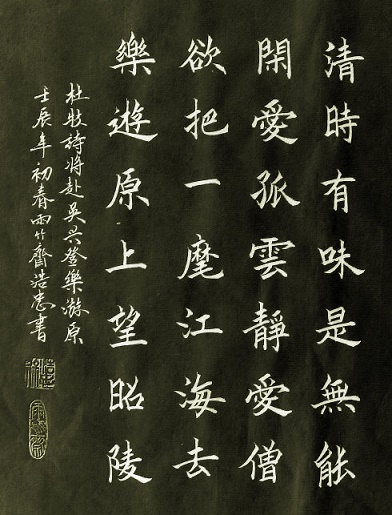 清時有味是無能
閑愛孤雲靜愛僧
欲把一麾江海去
樂遊原上望昭陵
杜牧詩将赴吳兴登樂游原
壬辰年初春雨竹齋浩志書